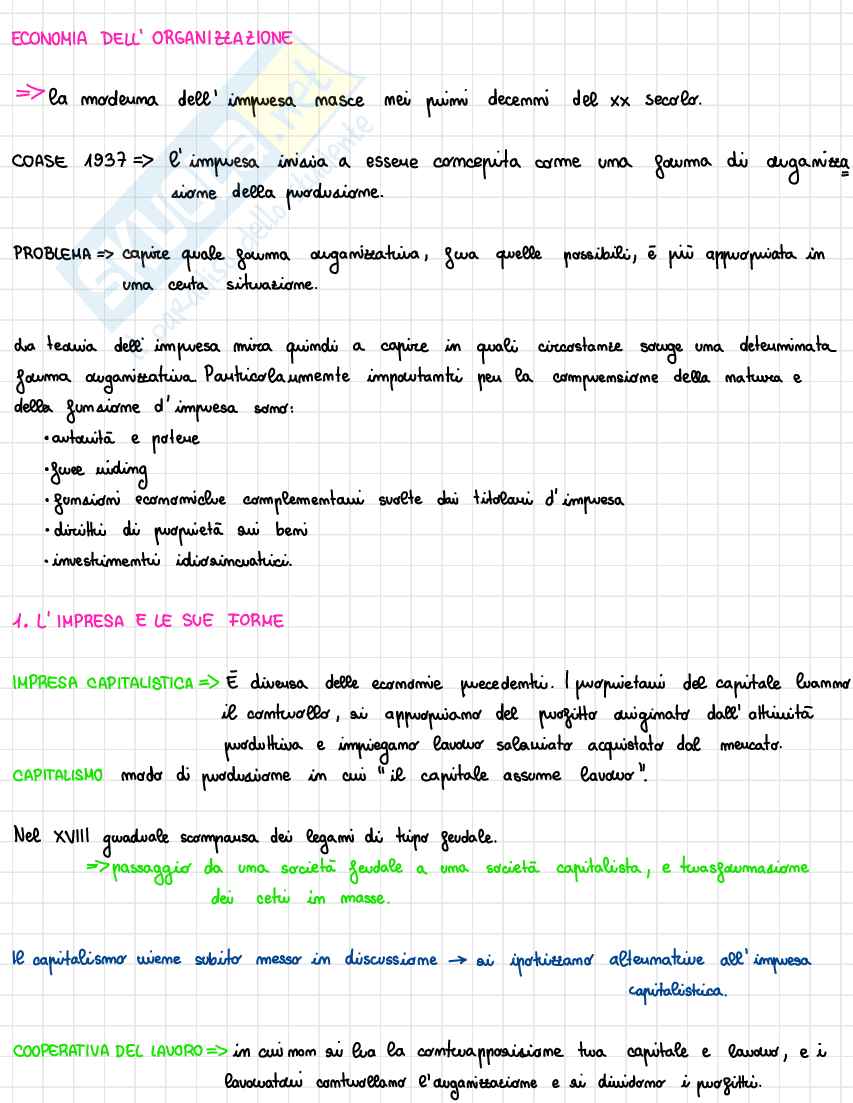 ECONOMIA DELL' ORGANIZZAZIONE
=> la moderna dell' impresa nasce nei primi decenni del XX secolo.
COASE 1937 => l'impresa inizia a essere concepita come una forma di organizza
zione della produzione.
PROBLEMA => capire quale forma organizzativa, fra quelle possibili, è più appropriata in
una certa situazione.
La teoria dell' impresa mira quindi a capire in quali circostanze sorge una determinata
forma organizzativa. Particolarmente importanti per la comprensione della natura e
della funzione d'impresa sono:
• autorità e potere
• free riding
• funzioni economiche complementari svolte dai titolari d'impresa
• diritti di proprietà sui beni
• investimenti idiosincratici.
1. L' IMPRESA E LE SUE FORME
IMPRESA CAPITALISTICA => È diversa delle economie precedenti. I proprietari del capitale hanno
il controllo, si appropriano del profitto originato dall'attività
produttiva e impiegano lavoro salariato acquistato dal mercato.
CAPITALISMO modo di produzione in cui "il capitale assume lavoro".
Nel XVIII graduale scomparsa dei legami di tipo feudale.
=> passaggio da una società feudale a una società capitalista, e trasformazione
dei ceti in masse.
Il capitalismo viene subito messo in discussione → si ipotizzano alternative all'impresa
capitalistica.
COOPERATIVA DEL LAVORO => in cui non si ha la contrapposizione tra capitale e lavoro, e i
lavoratori controllano l'organizzazione e si dividono i profitti.
SKUOLA.net
il paradiso dello studente